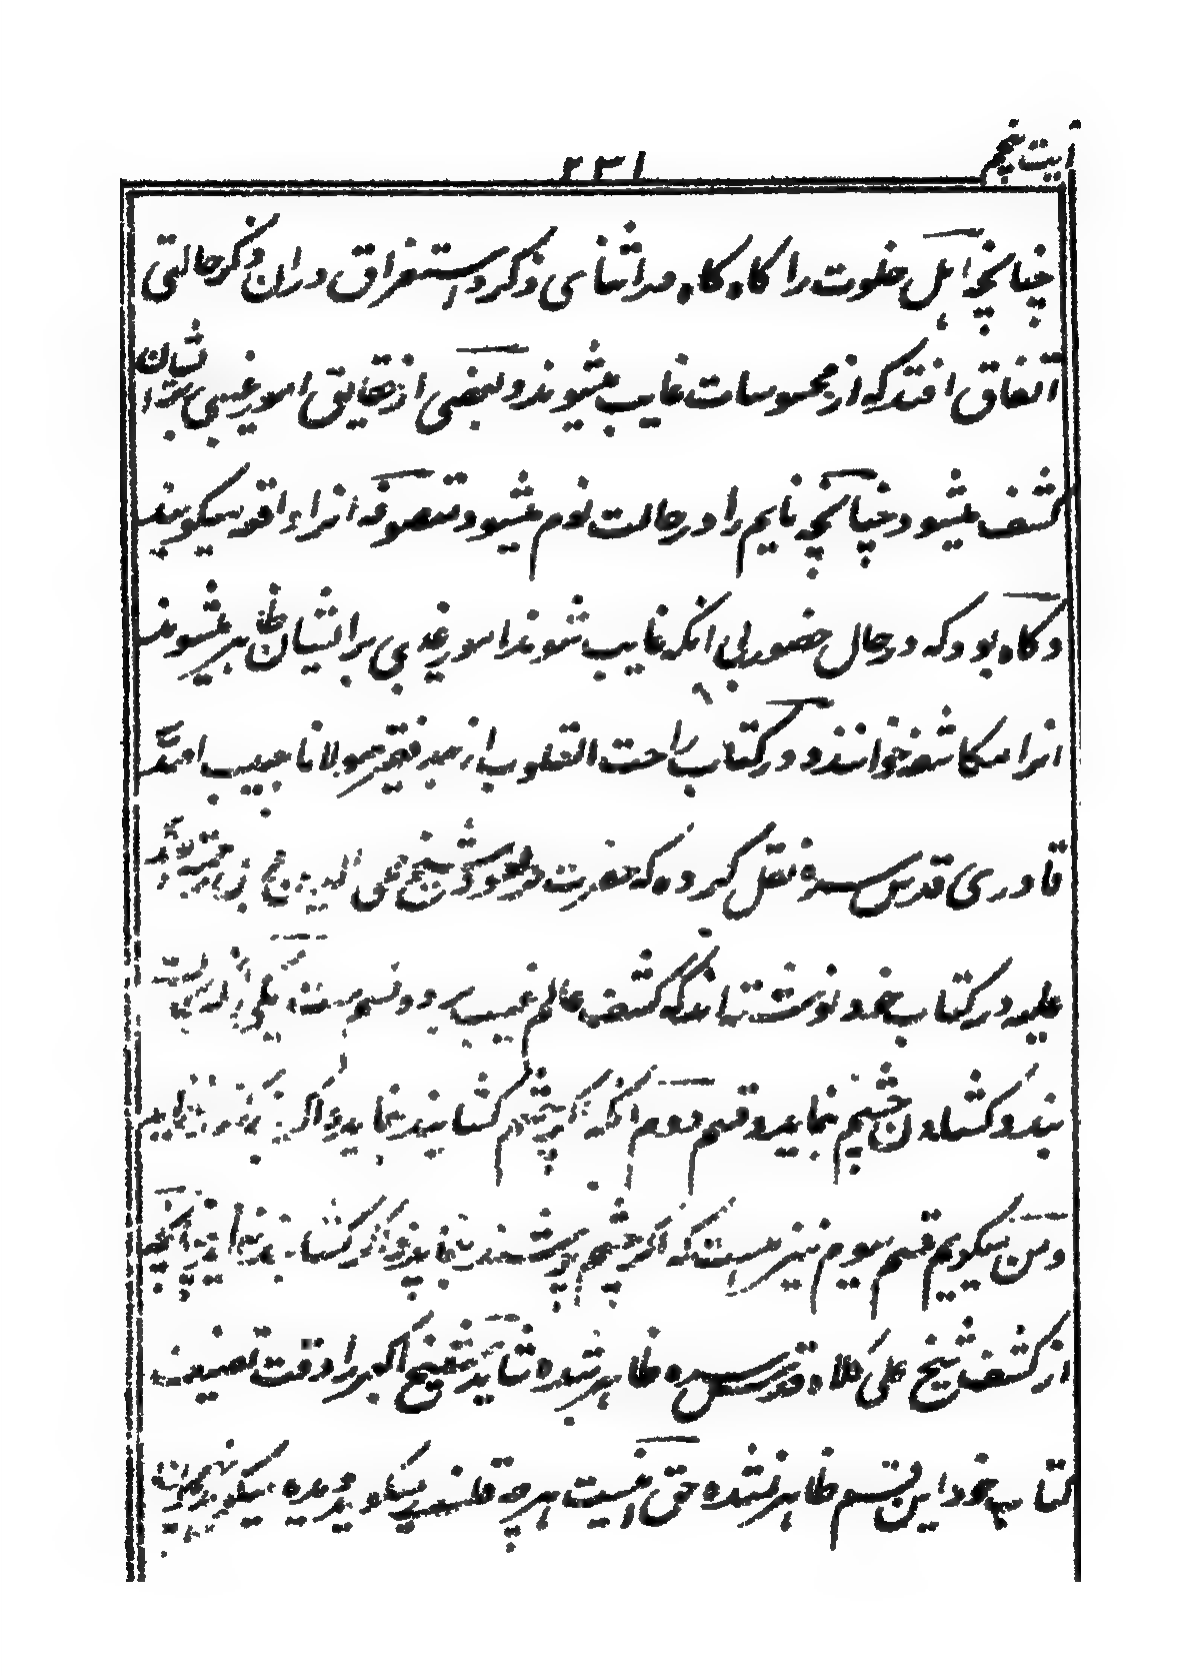 ایت پنجم
۲۳۱
چنانچه اهل خلوت را کاه کاه در اثنای ذکر و استغراق دران ذکر حالتی
اتفاق افتد که از محسوسات غایب میشوند و بعضی از حقایق امور غیبی بر ایشان
کشف میشود چنانچه نایم را در حالت نوم میشود متصوفه انرا واقعه میکویند
و کاه بود که در حال حضور بی انکه غایب شوند امور غیبی بر ایشان ظاهر میشوند
انرا مکاشفه خوانند و در کتاب راحت القلوب از سید فقیر مولانا حبیب الله
قادری قدس سره نقل کرده که حضرت خود شیخ علی
علیه در کتاب خود نوشته اند که کشف عالم غیب بر دو قسم است یکی
بند و کشادن چشم نماید و قسم دوم انکه اکر چشم کشایند نماید و اکر
و من میکویم قسم سیوم نیز هست که اکر چشم پوشند نماید و اکر کشایند
از کشف شیخ علی کلاه قدس سره ظاهر شده شاید شیخ اکبر را وقت تصنیف
کتاب خود این قسم ظاهر نشده حق انیست هرچه قلندر میکوید دیده میکوید